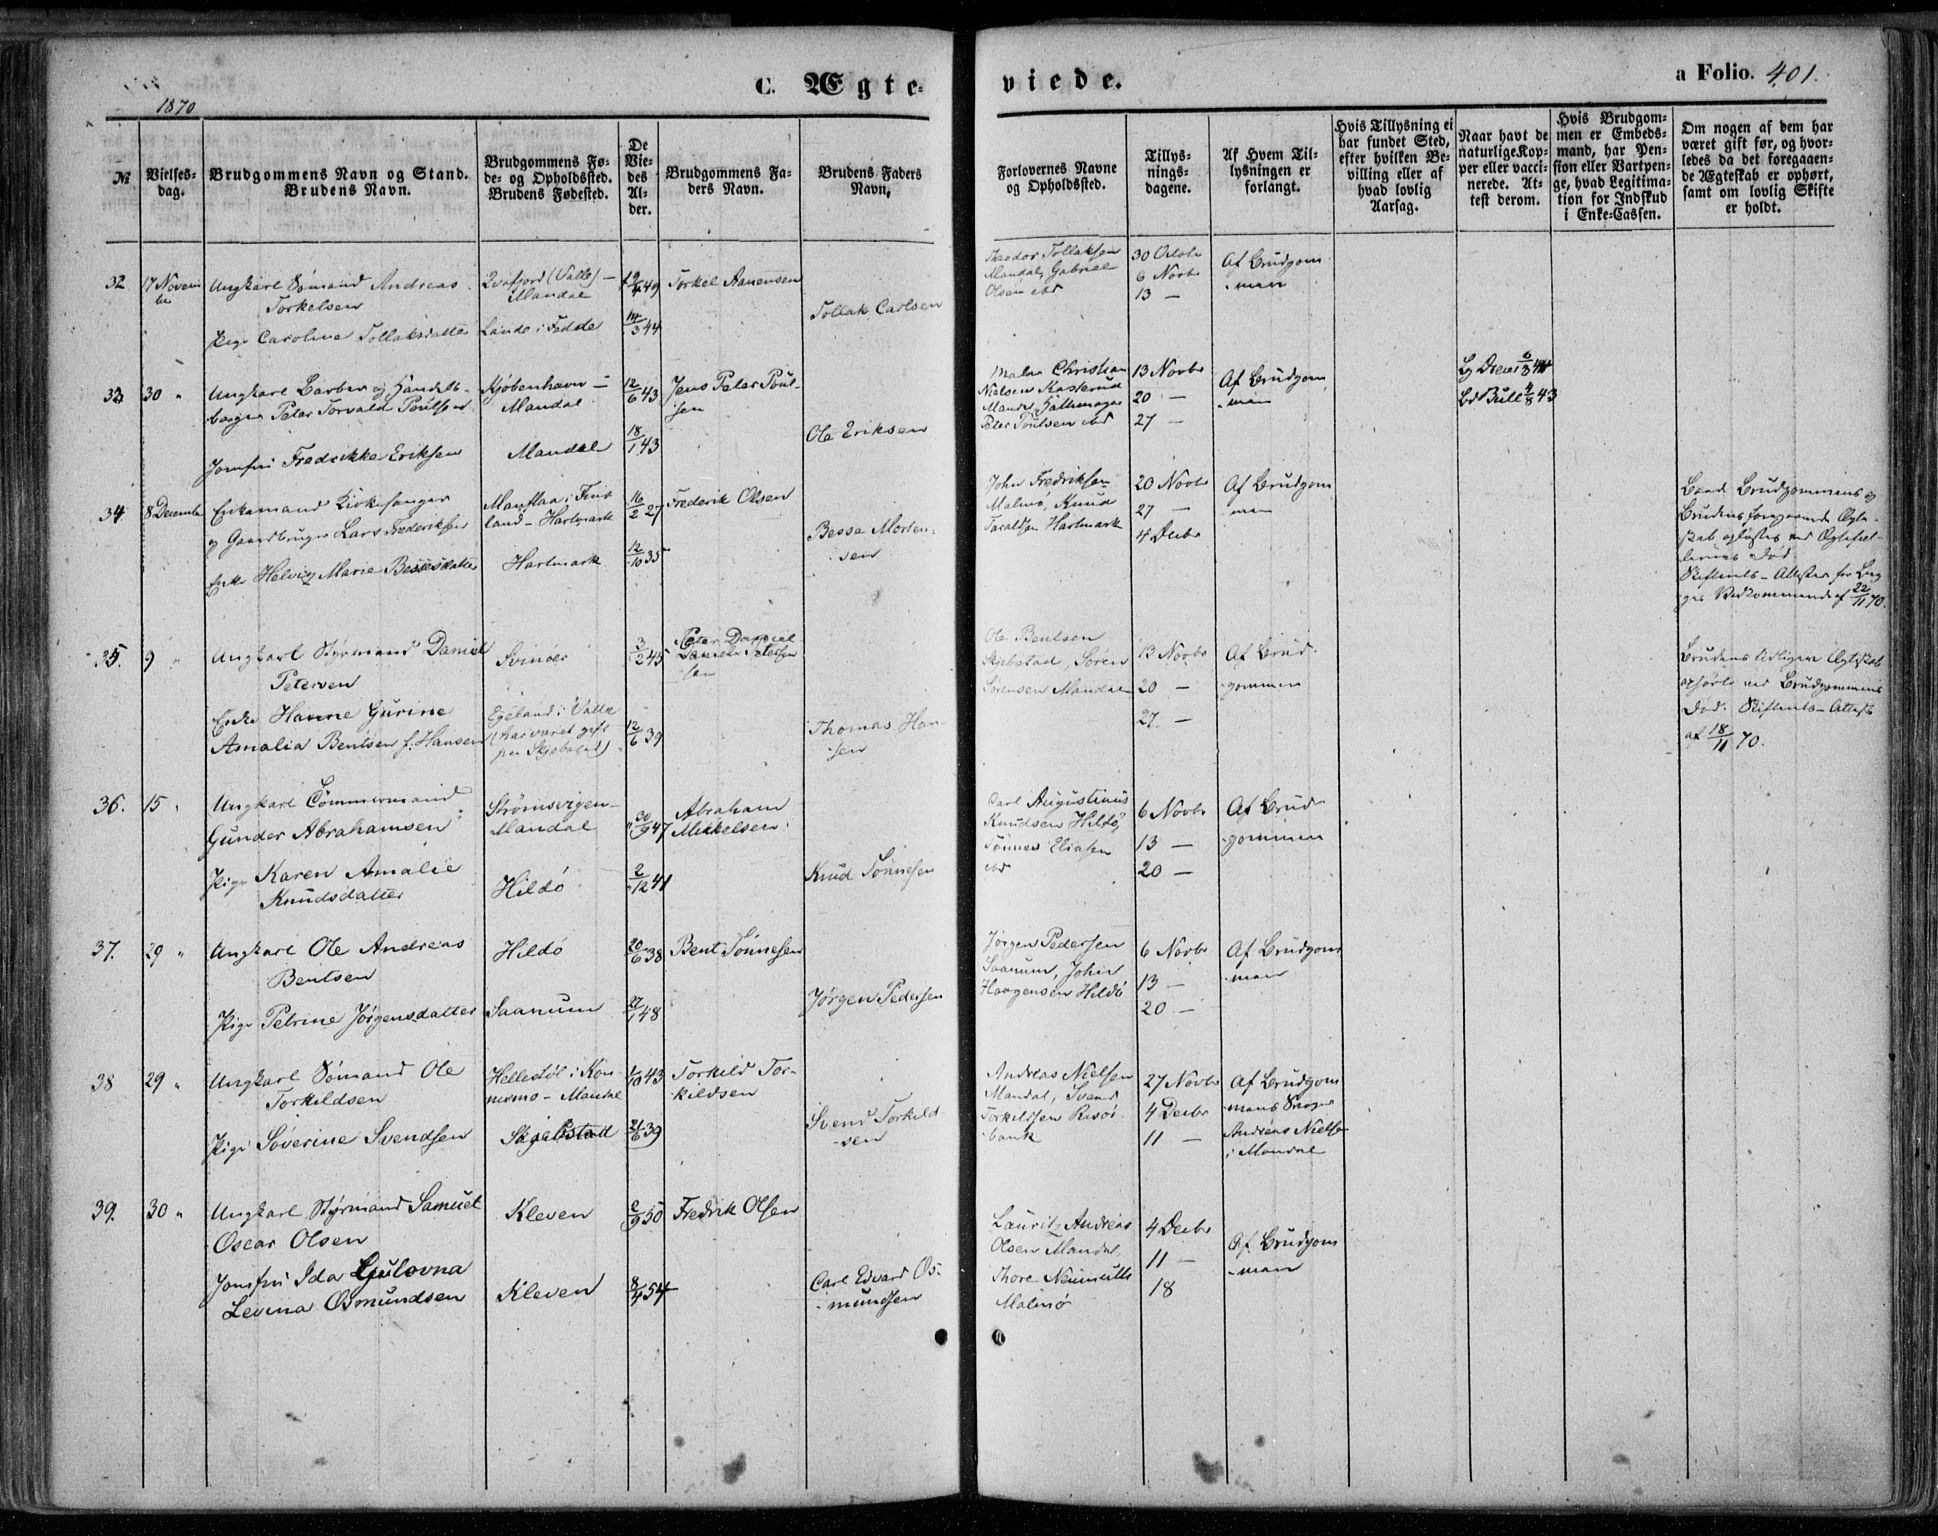 C. Ægte-
viede.
a Folio. 401.
1870
№
Vielses-
dag.
Brudgommens Navn og Stand.
Brudens Navn.
Brudgommens Fø-
de- og Opholdssted.
Brudens Fødested.
De
Vie-
des
Al-
der.
Brudgommens Fa-
ders Navn.
Brudens Faders
Navn.
Forlovernes Navne
og Opholdssted.
Tillys-
nings-
dagene.
Af Hvem Til-
lysningen er
forlangt.
Hvis Tillysning ei
har fundet Sted,
efter hvilken Be-
villing eller af
hvad lovlig
Aarsag.
Naar havt de
naturlige Kop-
per eller vacci-
nerede. At-
test derom.
Hvis Brudgom-
men er Embeds-
mand, har Pen-
sion eller Vartpen-
ge, hvad Legitima-
tion for Indskud
i Enke-Cassen.
Om nogen af dem har
været gift før, og hvor-
ledes da det foregaaen-
de Ægteskab er ophørt,
samt om lovlig Skifte
er holdt.
32 17 Novem
ber
Ungkarl Sømand Andreas
Torkelsen
Pige Caroline Tollaksdatter
Qvafjord (Valle) -
Mandal
Lande i Fedde
12/4 49
14/3 44
Torkel Aanensen
Tollak Carlsen
Theodor Tollaksen
Mandal, Gabriel
Olsen ibd
30 Octobr
6 Novbr
13 —
Af Brudgom
-men
33 30 "
Ungkarl Barber og Handels-
borger Peter Torvald Poulsen
Jomfru Fredrikke Eriksen
Kjøbenhavn -
Mandal
Mandal
12/6 43
18/1 43
Jens Peter Poul-
sen
Ole Eriksen
Maler Christian
Nielsen Kasterud
Mandal
Peter Poulsen ibd
13 Novbr
20 —
27 —
Af Brudgom
-men
Bg Dreier 6/3 44
Bd Bull 4/8 43
34 8 December
Enkemand Kirkesanger
og Gaardbruger Lars Frederiksen
Enke Helvig Marie Bessesdatter
Manflaa i Finds
land - Hartmark
Hartmark
16/2 27
12/10 35
Frederik Olsen
Besse Morten-
sen
John Fredriksen
Malmø, Knud
Taraldsen Hartmark
20 Novbr
27 —
4 Decbr
Af Brudgom
men
Baade Brudgommens og
Brudens foregaaende Ægte-
skab opløstes ved Ægtefæl-
lernes Død
Skifterets-Attester for Beg
ges Vedkommende af 22/11 70.
35. 9 "
Ungkarl Styrmand Daniel
Petersen
Enke Hanne Gurine
Amalia Bentsen f. Hansen
Svinøer
Egeland i Valle
(har været gift
paa Skjebstad)
3/2 45
12/6 39
Peter Daniel
sen
Thomas Han
sen
Ole Bentsen
Skjebstad, Sören
Sørensen Mandal
13 Novbr
20 —
27 —
Af Brud-
gommen
Brudens tidligere Ægteskab
ophørte ved Brudgommens
Død. Skifterets-Attest
af 18/11 70.
36. 15 "
Ungkarl Tømmermand
Gunder Abrahamsen
Pige Karen Amalie
Knudsdatter
Strømsvigen-
Mandal
Hildö
30/9 47
2/12 41
Abraham
Mikkelsen
Knud Tönnesen
Carl Augustinus
Knudsen Hildö,
Tønnes Eliasen
ibd
6 Novbr
13 —
20 —
Af Brud-
gommen
37. 29 "
Ungkarl Ole Andreas
Bentsen
Pige Petrine Jørgensdatter
Hildö
Saanum
20/6 38
27/1 48
Bent Tönnesen
Jørgen Pedersen
Jørgen Pedersen
Saanum, John
Haagensen Hildö
6 Novbr
13 —
20 —
Af Brudgom
-men
38 29 "
Ungkarl Sømand Ole
Torkildsen
Pige Söverine Svendsen
Hellestøl i Kon-
nesmo - Mandal
Skjebstad
1/10 43
21/6 39
Torkild Tor-
kildsen
Svend Torkild
-sen
Andreas Nielsen
Mandal, Svend
Torkildsen Risör-
bank
27 Novbr
4 Decbr
11 —
Af Brudgom
mens Svoger
Andreas Nielsen
i Mandal
39. 30 "
Ungkarl Styrmand Samuel
Oscar Olsen
Jomfru Ida Gjulovna
Levina Osmundsen
Kleven
Kleven
2/9 50
8/4 54
Fredrik Olsen
Carl Edvard Os-
mundsen
Lauritz Andreas
Olsen Mandal,
Thore Neumuth
Malmø
4 Decbr
11 —
18
Af Brudgom
-men